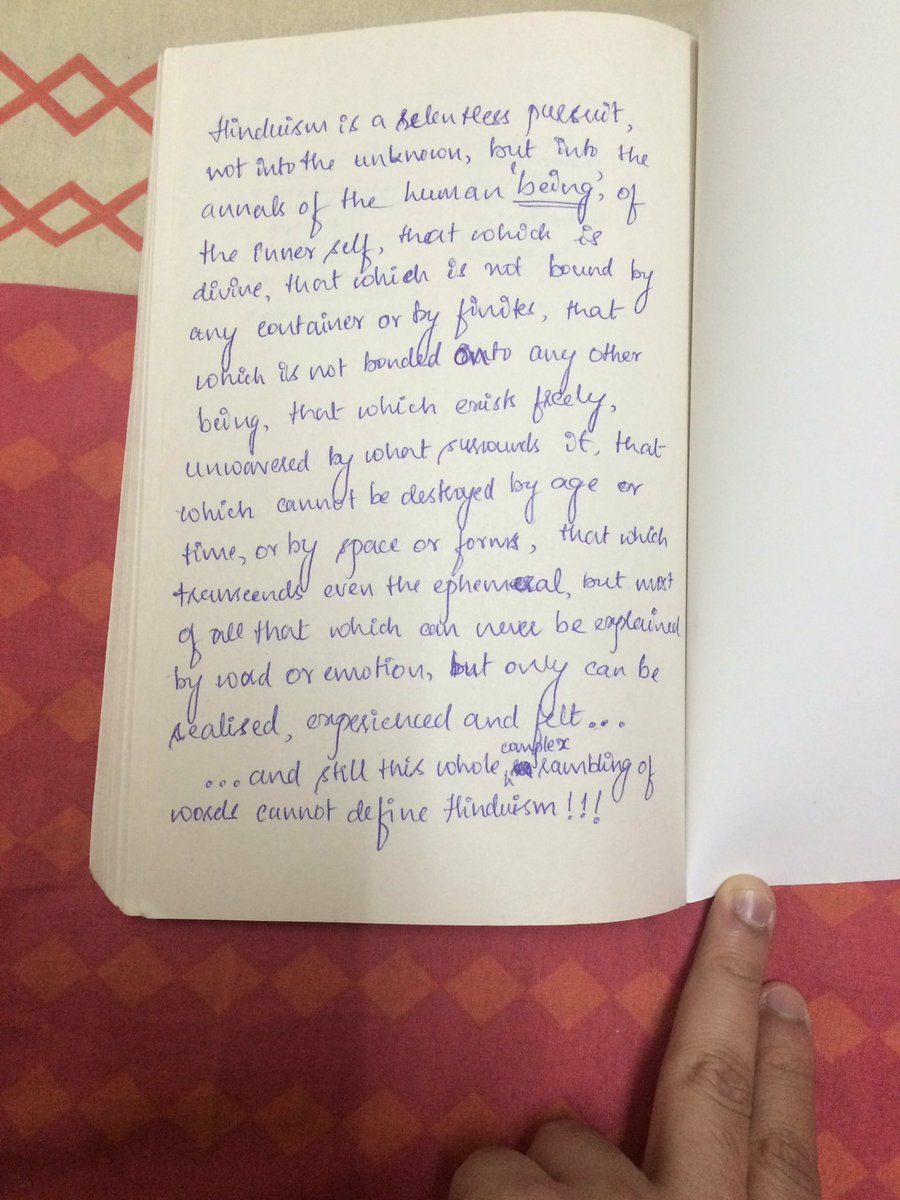 Hinduism is a relentless pursuit,
not into the unknown, but into the
annals of the human 'being', of
the inner self, that which is
divine, that which is not bound by
any container or by finites, that
which is not bonded onto any other
being, that which exists freely,
unwavered by what surrounds it, that
which cannot be destroyed by age or
time, or by space or forms, that which
transcends even the ephemeral, but most
of all that which can never be explained
by word or emotion, but only can be
realised, experienced and felt...
...and still this whole complex rambling of
words cannot define Hinduism!!!